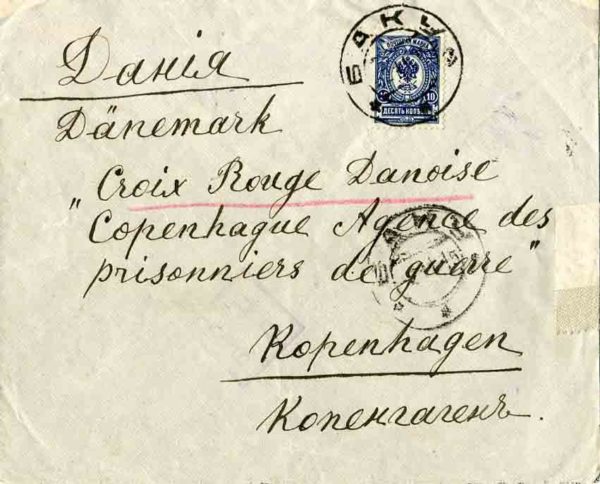 БАКУ
10
ДЕСЯТЬ КОП.
Данія
Dänemark
Croix Rouge Danoise
"Copenhague Agence des
prisonniers de guerre"
Kopenhagen
Копенгагенъ.